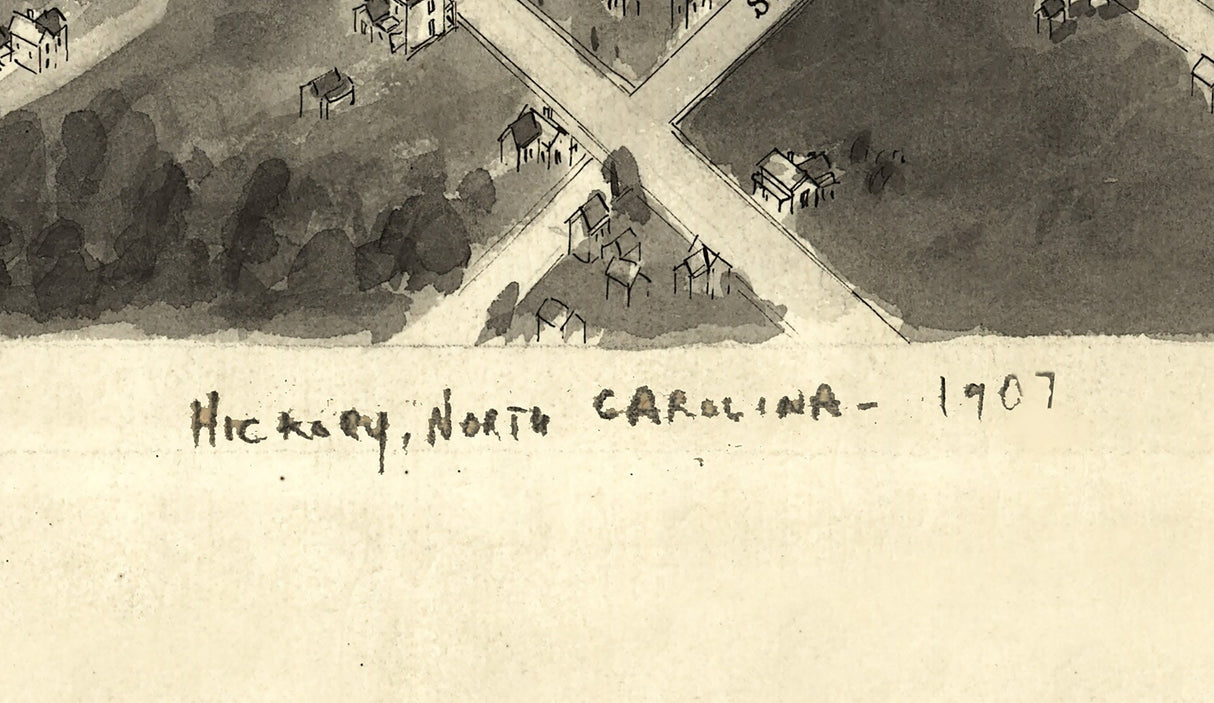 HICKORY, NORTH CAROLINA - 1907